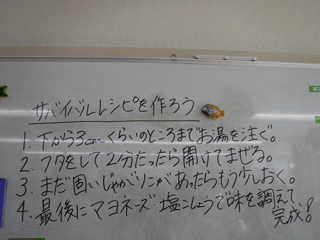 サバイバルレシピを作ろう
1. 下から3cmくらいのところまでお湯を注ぐ。
2. フタをして2分たったら開けてまぜる。
3. まだ固いじゃがりこがあったらもう少しおく。
4. 最後にマヨネーズ塩こしょうで味を調えて
完成!